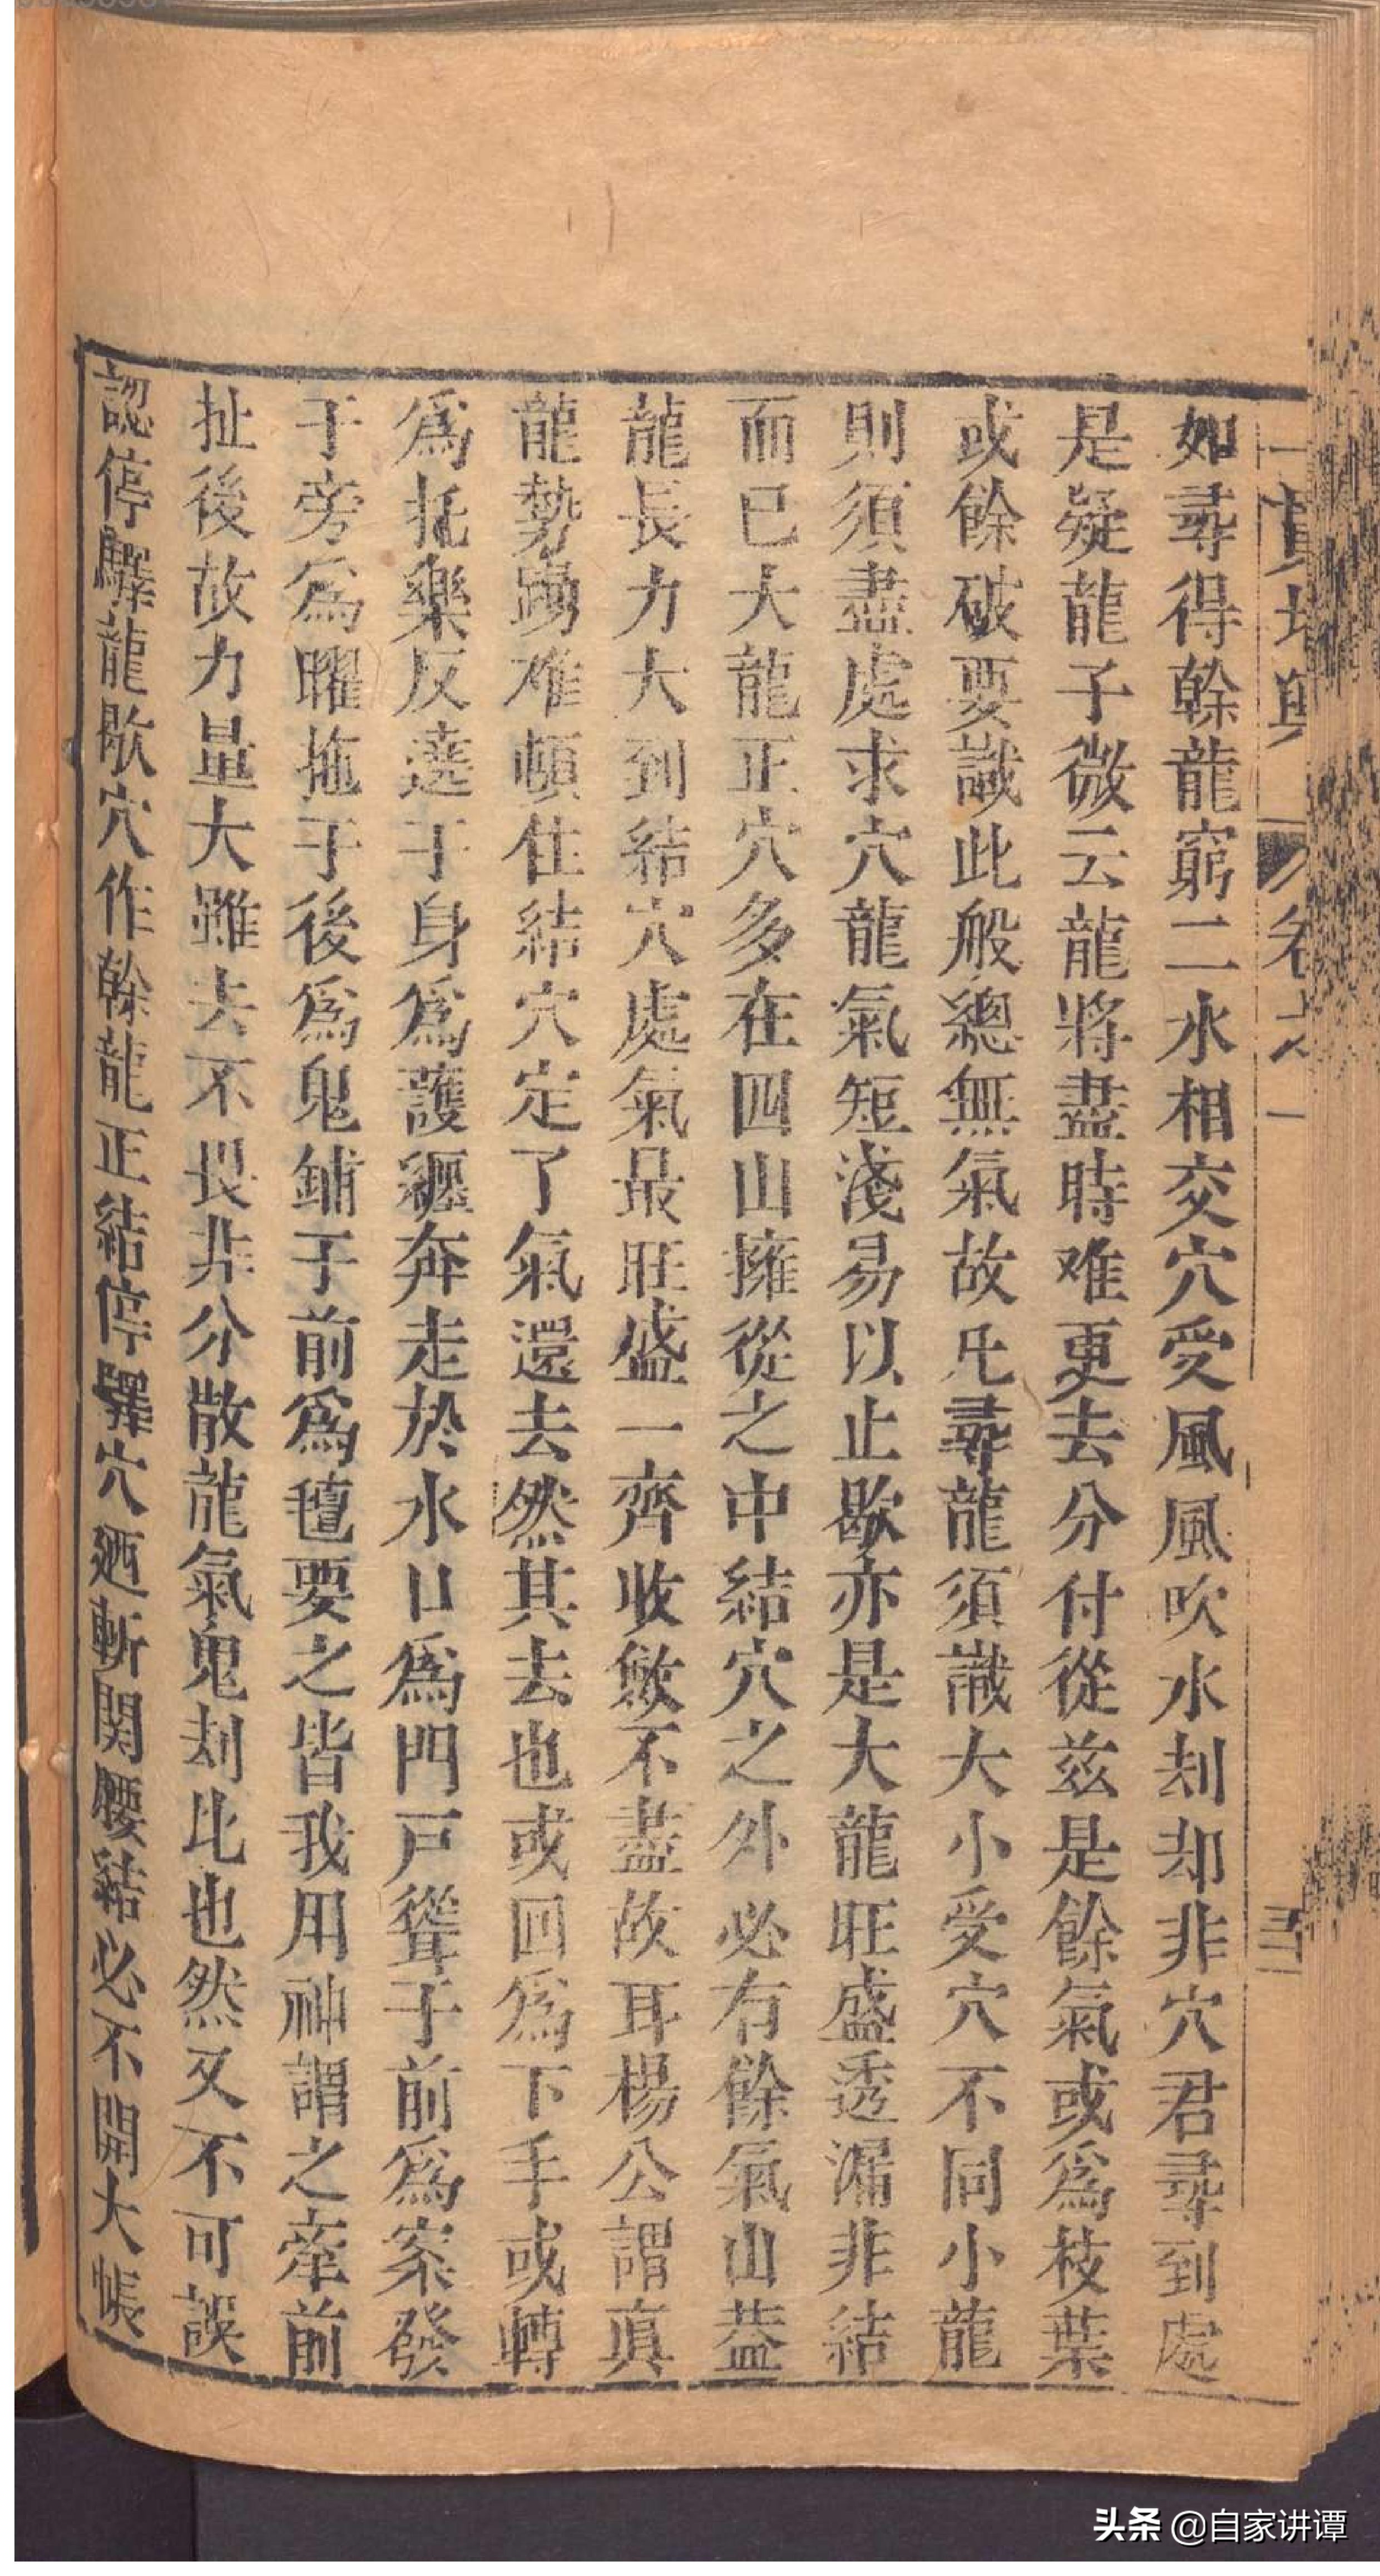 如尋得榦龍窮二水相交穴受風風吹水刦却非穴君尋到處
是疑龍子微云龍將盡時难更去分付從兹是餘氣或爲枝葉
或餘破要識此般總無氣故凡尋龍須識大小受穴不同小龍
則須盡處求穴龍氣短淺易以止歇亦是大龍旺盛透漏非結
而已大龍正穴多在四山擁從之中結穴之外必有餘氣山葢
龍長力大到結穴處氣最旺盛一齊收斂不盡故耳楊公謂真
龍勢踴难頓住結穴定了氣還去然其去也或回爲下手或轉
爲托樂反遶于身爲護纒奔走於水口爲門戸聳于前爲案發
于旁爲曜拖于後爲鬼鋪于前爲氊要之皆我用神謂之牽前
扯後故力量大雖去不畏非分散龍氣鬼刦比也然又不可誤
認停驛龍歇穴作榦龍正結停驛穴廼斬関腰結必不開大帳
頭条 @自家讲谭